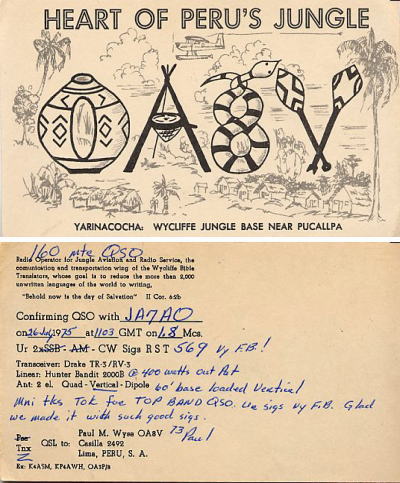 HEART OF PERU'S JUNGLE
OA8V
YARINACOCHA: WYCLIFFE JUNGLE BASE NEAR PUCALLPA
160 mtr QSO
Radio Operator for Jungle Aviation and Radio Service, the
comunication and transportation wing of the Wycliffe Bible
Translators, whose goal is to reduce the more than 2,000
unwritten languages of the world to writing.
"Behold now is the day of Salvation" II Cor. 6:2b
Confirming QSO with JA7AO
on 26 July 1975 at 1103 GMT on 1.8 Mcs.
Ur 2xSSB - AM - CW Sigs R S T 569 Vy F.B!
Transceiver: Drake TR-3/RV-3
Linear: Hunter Bandit 2000B @ 400 watts out Pat
Ant: 2 el. Quad - Vertical - Dipole 60' base loaded Vertical
Mni tks Tok for TOP BAND QSO. Ur sigs Vy F.B. Glad
we made it with such good sigs.
73 Paul
Pse
Tnx QSL to: Paul M. Wyse OA8V
Casilla 2492
Lima, PERU, S. A.
Ex: K4ASM, KP4AWH, OA3P/8